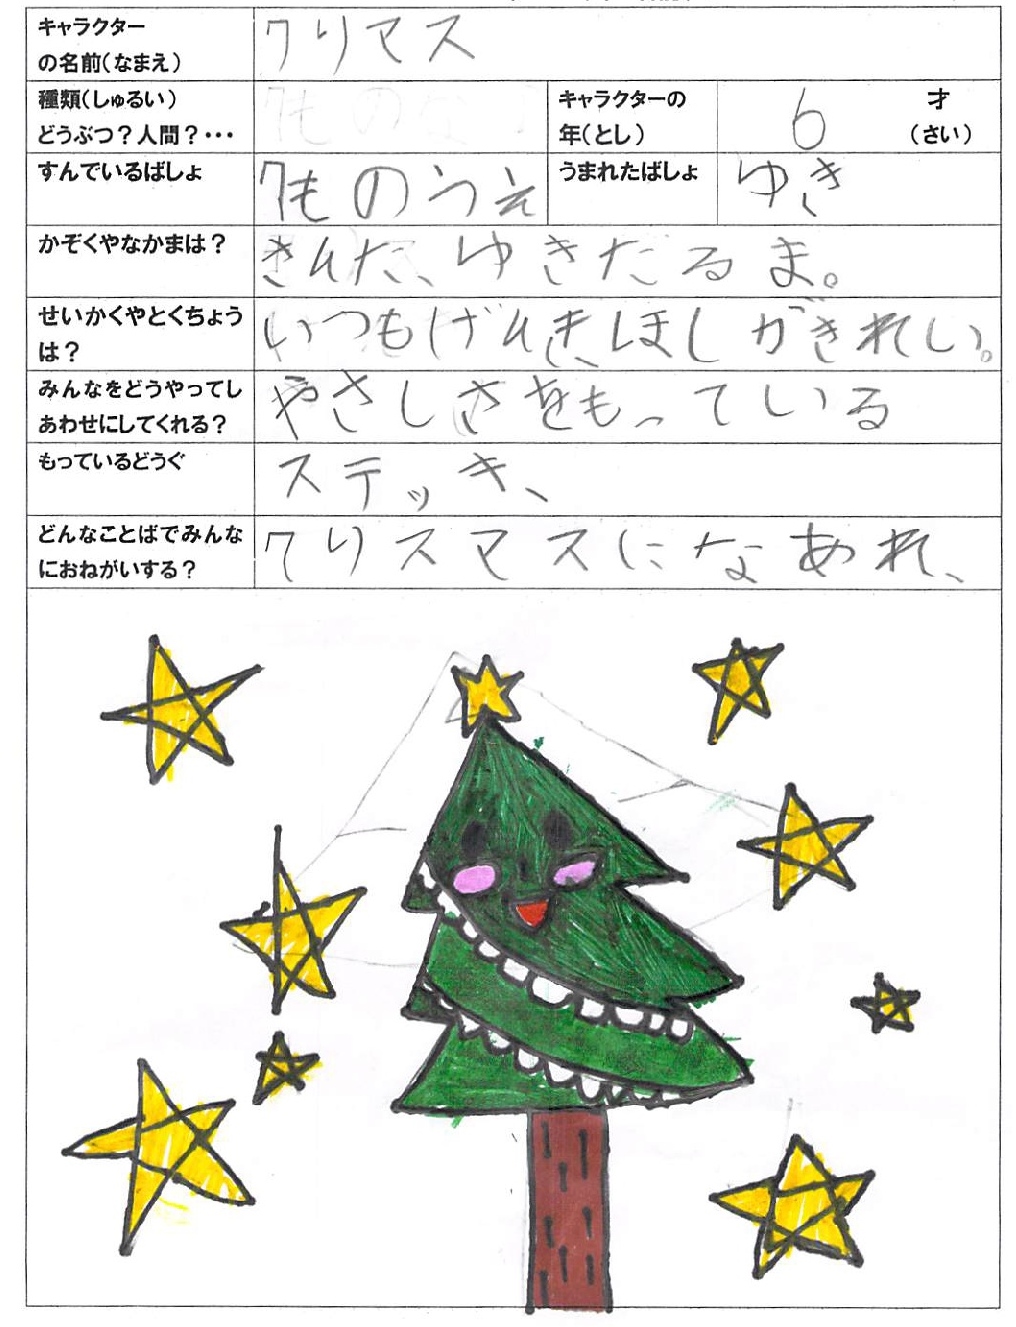 キャラクター
の名前(なまえ)
クリマス
種類(しゅるい)
どうぶつ?人間?・・・
キャラクターの
年(とし)
6
才
(さい)
すんでいるばしょ
くものうえ
うまれたばしょ
ゆき
かぞくやなかまは?
さんた、ゆきだるま。
せいかくやとくちょう
は?
いつもげんき、ほしがきれい。
みんなをどうやってし
あわせにしてくれる?
やさしさをもっている
もっているどうぐ
ステッキ、
どんなことばでみんな
におねがいする?
クリスマスになあれ、